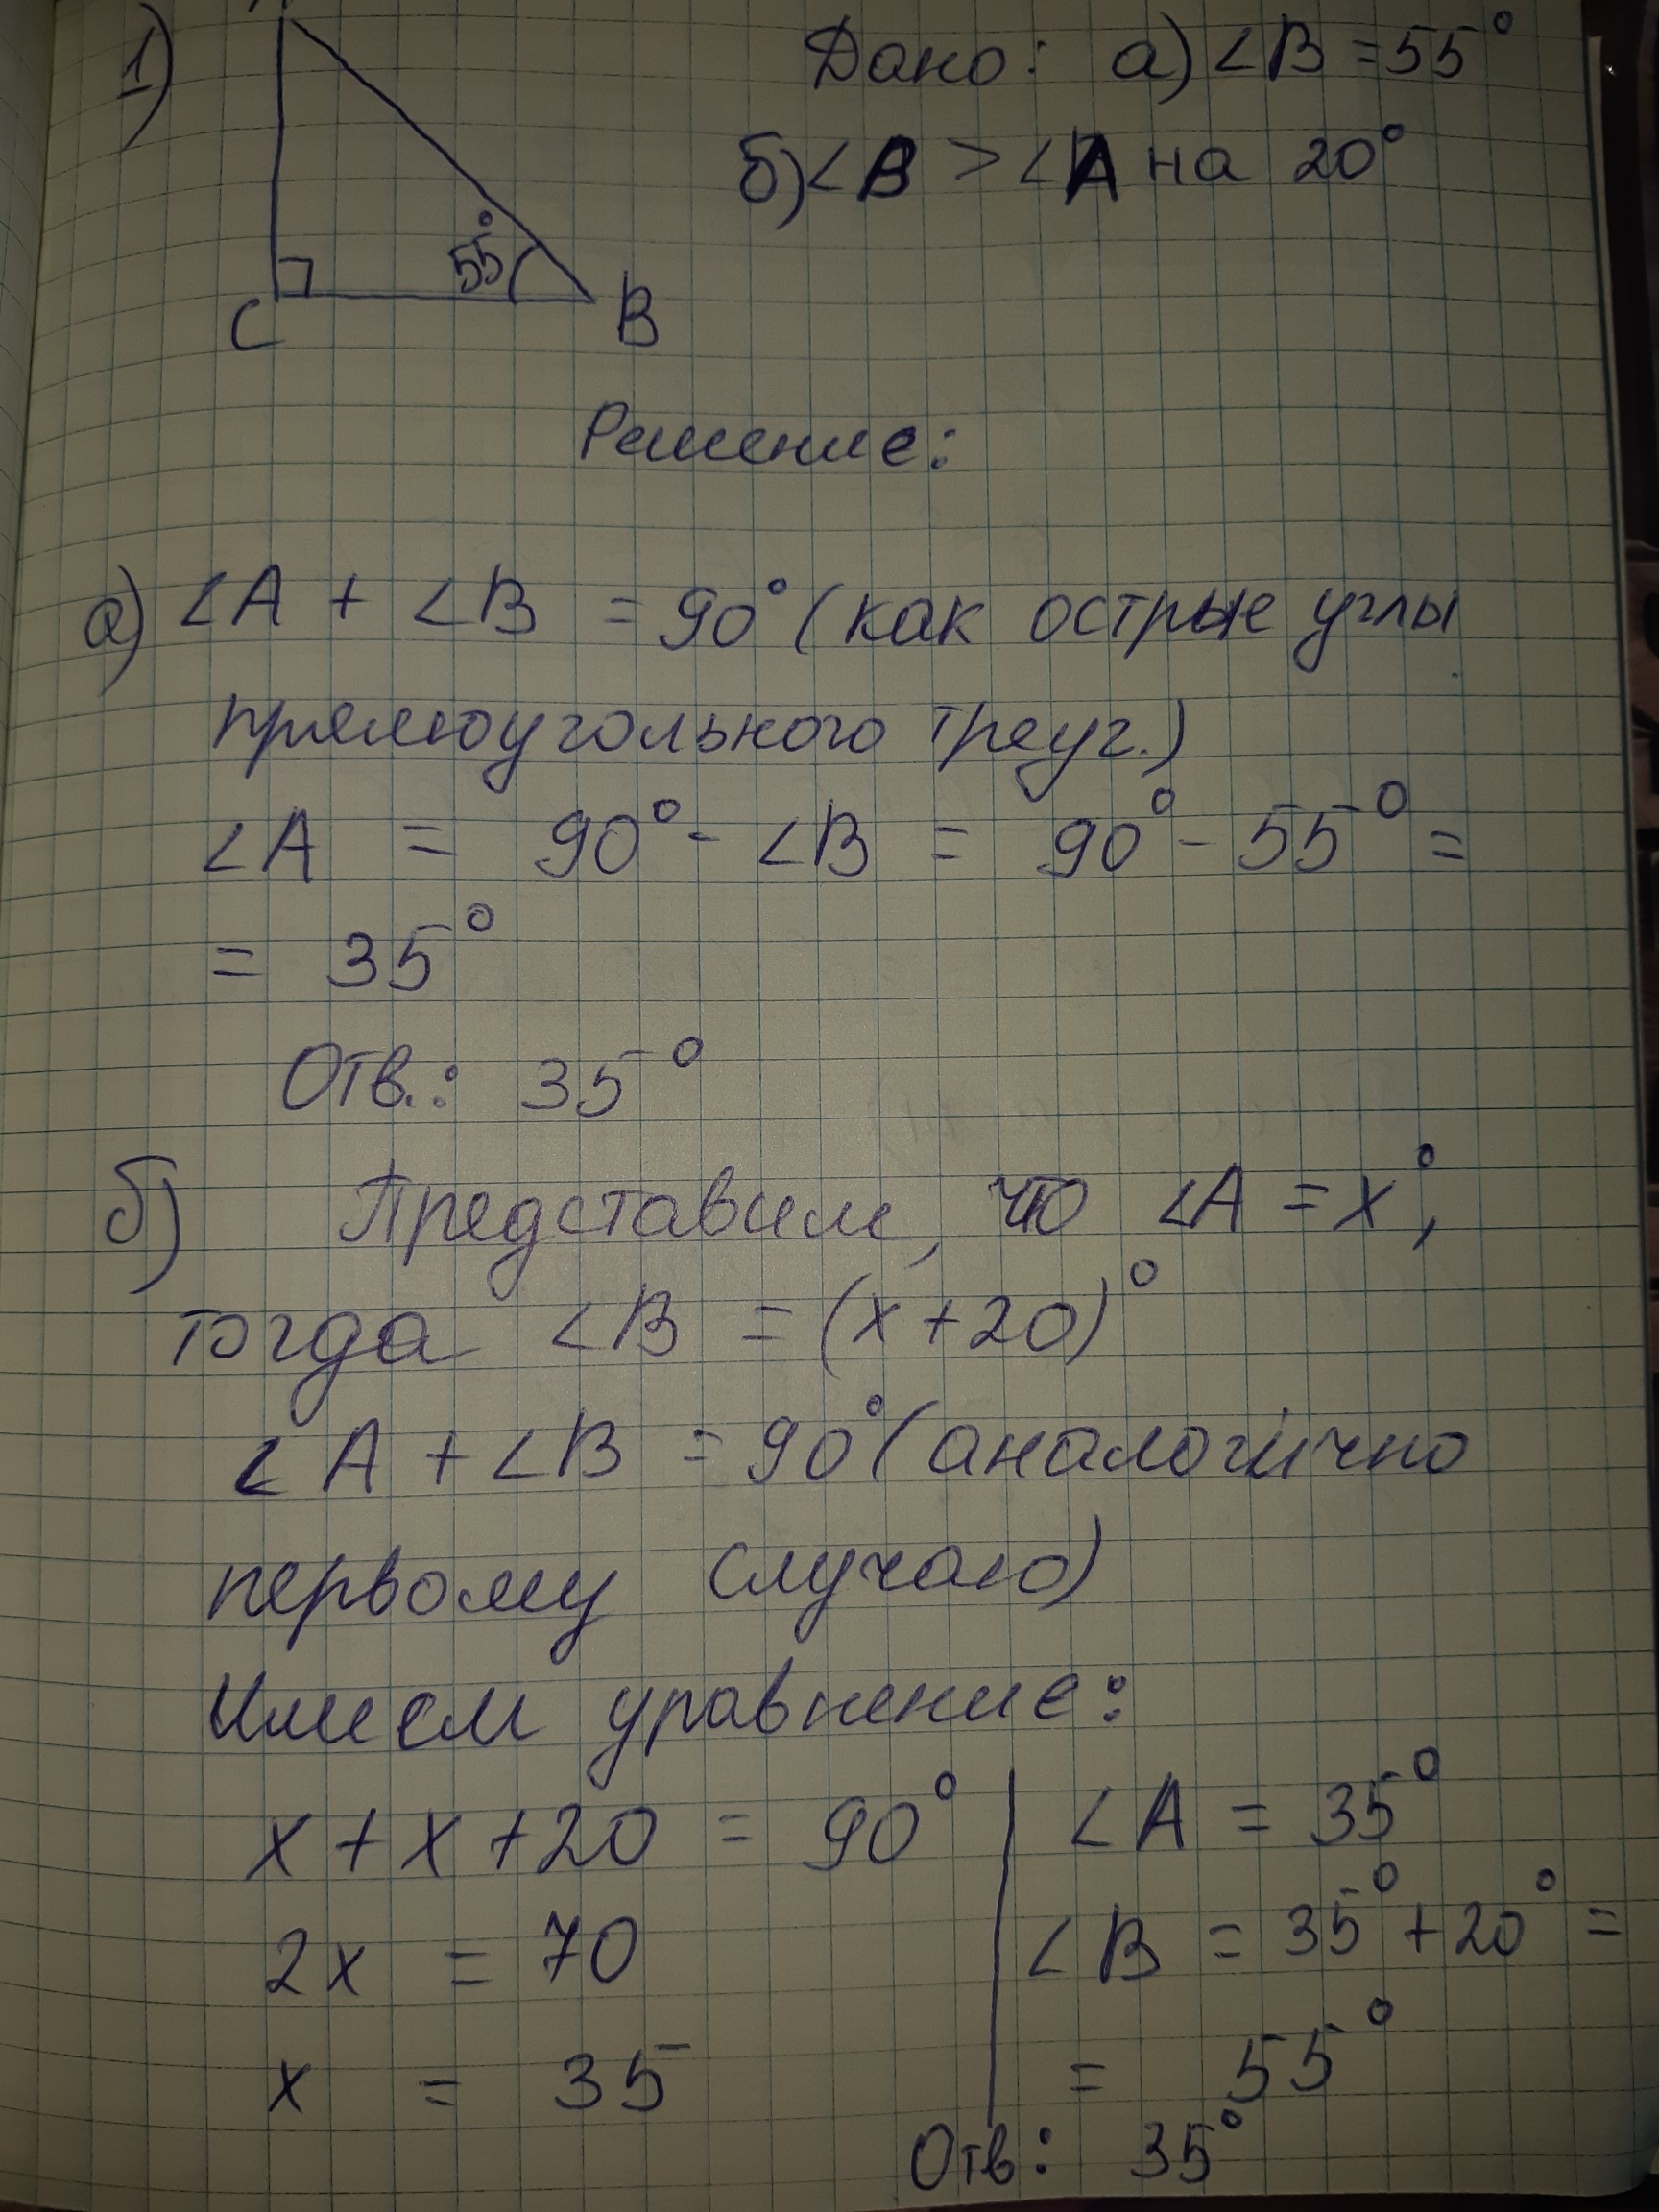 1)
Дано: а) ∠B = 55°
б) ∠B > ∠A на 20°
55°
C
B
Решение:
а) ∠A + ∠B = 90° (как острые углы
прямоугольного треуг.)
∠A = 90° - ∠B = 90° - 55° =
= 35°
Отв.: 35°
б) Представим, что ∠A = x°,
тогда ∠B = (x+20)°
∠A + ∠B = 90° (аналогично
первому случаю)
Имеем уравнение:
x + x + 20 = 90°
2x = 70
x = 35
∠A = 35°
∠B = 35° + 20° =
= 55°
Отв: 35°